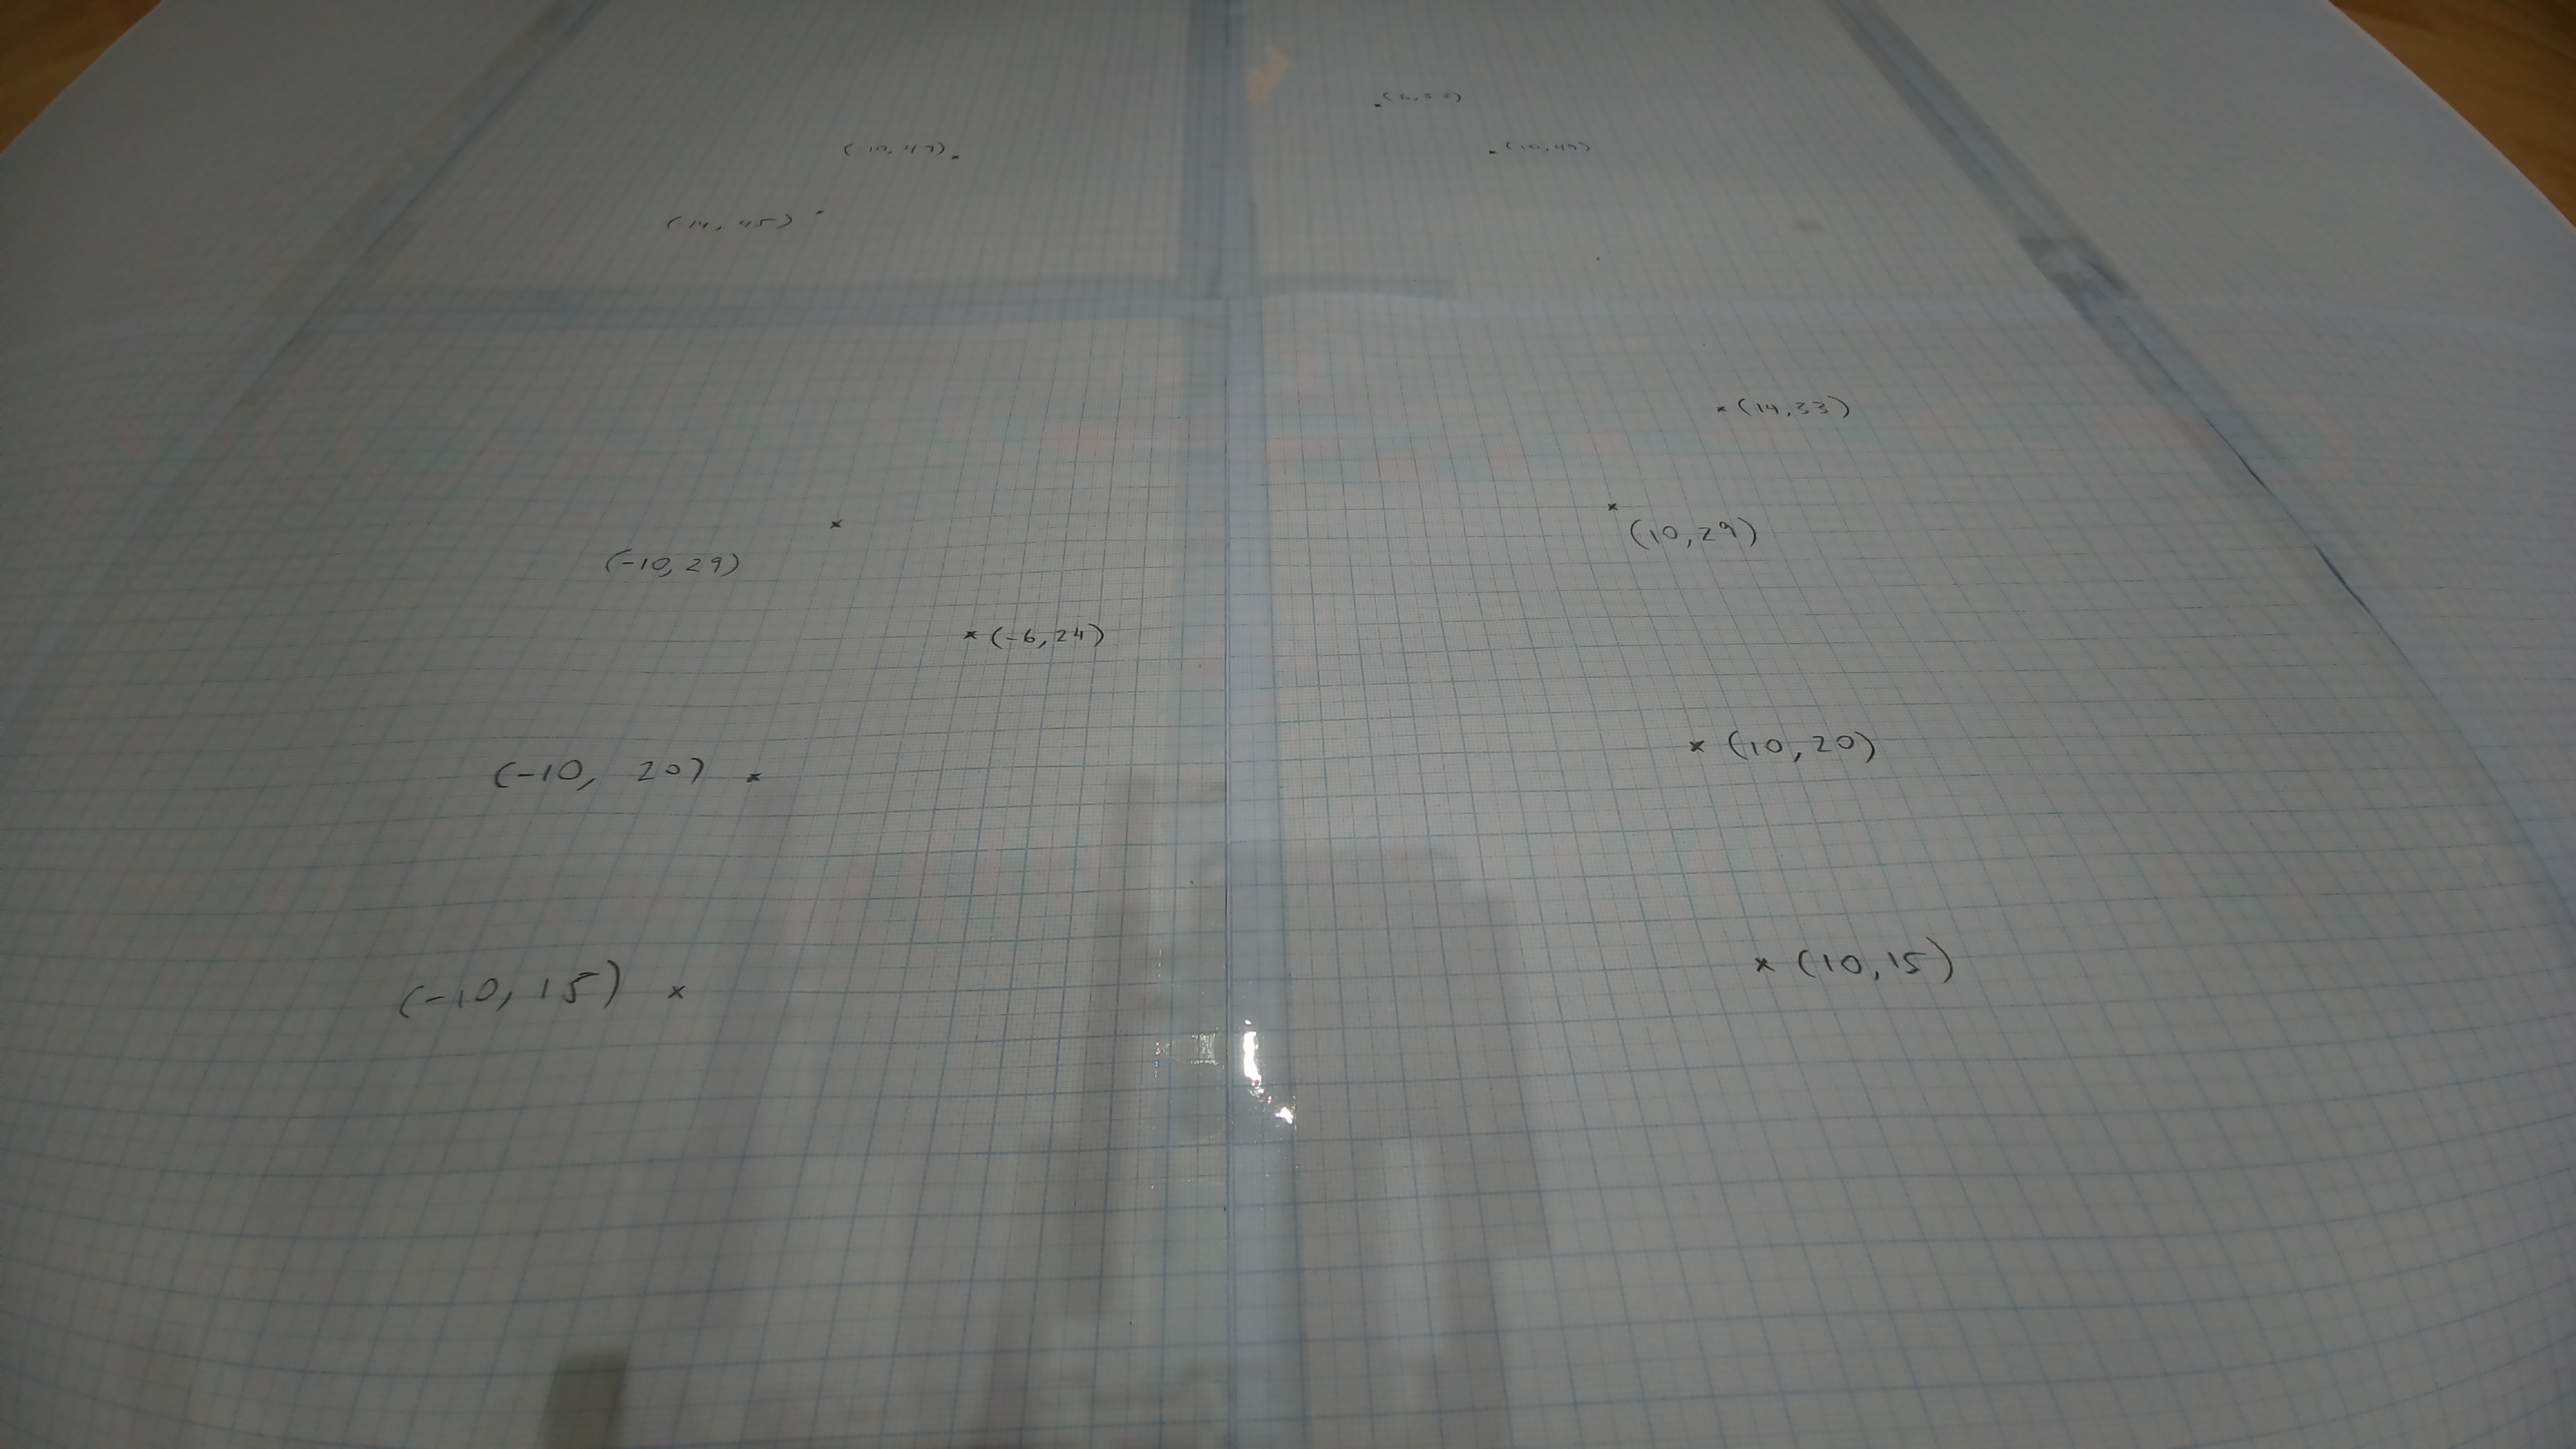 (6,52)
(-10,49)
(10,49)
(-14,45)
(14,33)
(10,29)
(-10,29)
(-6,24)
(10,20)
(-10, 20)
(10,15)
(-10,15)